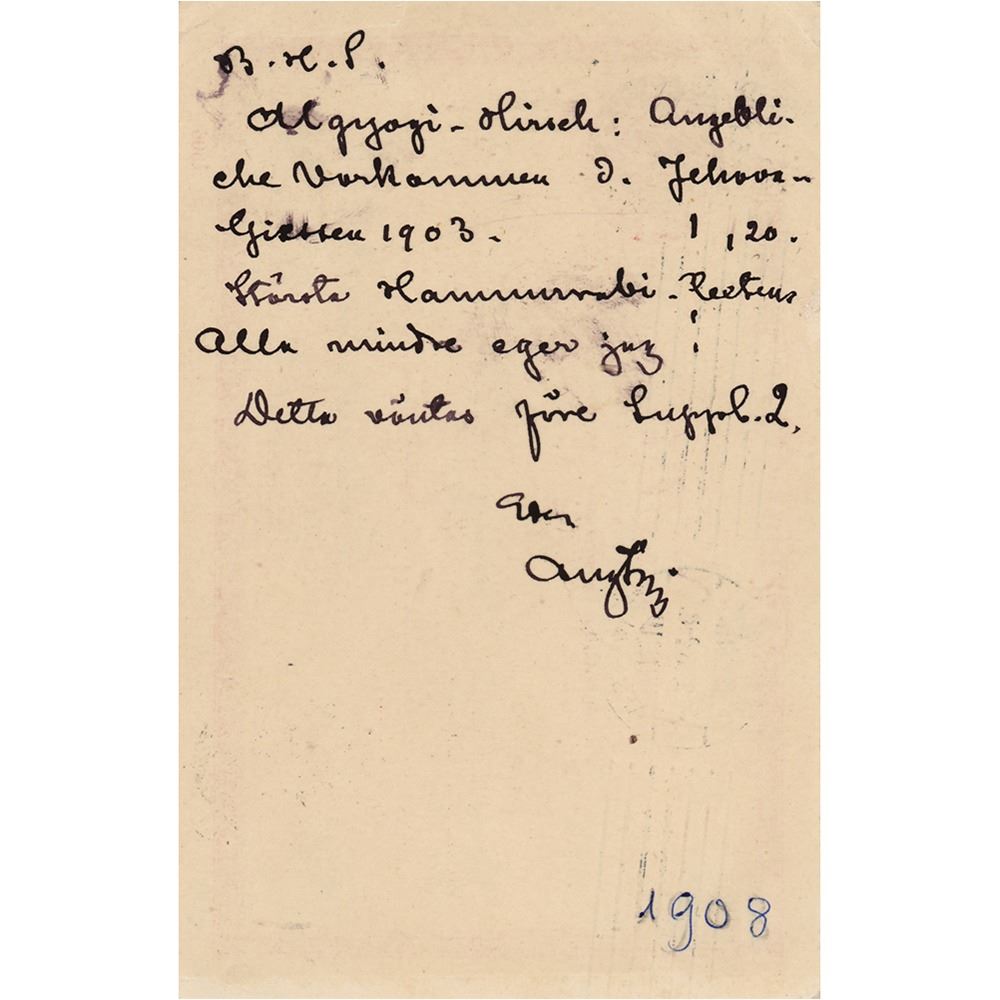 B. H. P.
Algyogi-Hirsch: Angebli-
che Vorkommen d. Jehova-
Giessen 1903. 1,20.
Största Hammurabi-
Alla mindre eger jag!
Detta väntas före Suppl. 2.
Eder
1908